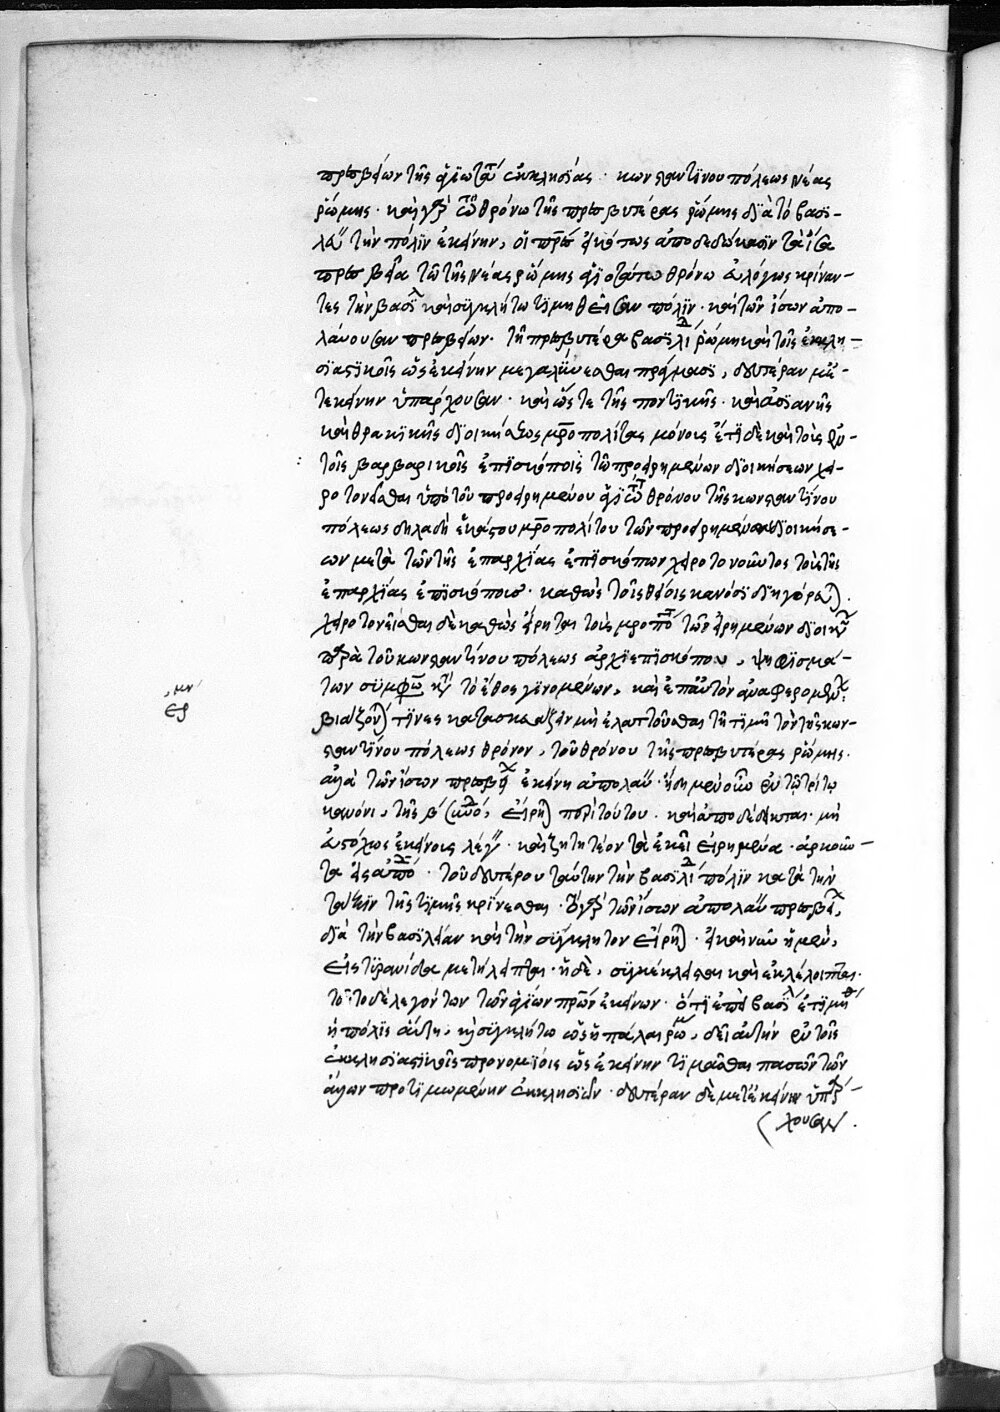 πρεσβείων τῆς ἁγιωτά ἐκκλησίας · κωνσταντίνου πόλεως νέας
ῥώμης · καὶ γὰρ τῶ θρόνω τῆς πρεσβυτέρας ῥώμης διὰ τὸ βασι-
λεύ τὴν πόλιν ἐκείνην, οἱ πρς εἰκότως ἀποδεδώκασιν τὰ ἴσα
πρεσβεῖα τῶ τῆς νέας ῥώμης ἁγιοτάτω θρόνω εὐλόγως κρίναν-
τες τὴν βασι καὶ συγκλήτω τιμηθεῖσαν πόλιν · καὶ τῶν ἴσων ἀπο-
λάυουσαν πρεσβείων · τῆ πρεσβυτέρα βασιλί ῥώμη καὶ τοῖς ἐκκλη-
σιαστικοῖς ὡς ἐκείνην μεγαλύνεσθαι πράγμασι, δευτέραν με-
τεκείνην ὑπάρχουσαν · καὶ ὥστε τῆς ποντικῆς · καὶ ἀσιανῆς
καὶ θρακικῆς διοικήσεως μροπολίτας μόνοις ἔτι δὲ καὶ τοὺς ἐν
τοῖς βαρβαρικοῖς ἐπισκόποις τῶν προειρημένων διοικήσεων χει-
ροτονεῖσθαι ὑπὸ τοῦ προειρημένου ἁγιωτ θρόνου τῆς κωνσταντίνου
πόλεως δηλαδὴ ἑκάστου μροπολίτου τῶν προειρημένων διοικήσε-
ων μετὰ τῶν τῆς ἐπαρχίας ἐπισκόπων χειροτονοῦντος τοὺς τῆς
ἐπαρχίας ἐπισκόπους · καθὼς τοῖς θείοις κανόσι διηγόρευ
χειροτονεῖσθαι δὲ καθὼς εἴρηται τοὺς μροπο τῶν εἰρημένων διοικη
παρὰ τοῦ κωνσταντίνου πόλεως ἀρχιεπισκόπου, ψηφισμά-
των συμφω κτ τὸ ἔθος γινομένων, καὶ ἐπ αὐτὸν ἀναφερομεν
βιάζον τινες κατασκευάζειν μὴ ἐλαττοῦσθαι τῆ τιμῆ τὸν τῆς κων-
σταντίνου πόλεως θρόνον, τοῦ θρόνου τῆς πρεσβυτέρας ῥώμης.
ἀλλὰ τῶν ἴσων πρεσβεί ἐκείνη ἀπολαύ · ἤδη μὲν οὖν ἐν τῶ τρίτω
κανόνι, τῆς β (κω, εἴρη) περὶ τούτου · καὶ ἀποδέδεικται · μὴ
εὐστόχως ἐκείνοις λέγ · καὶ ζητητέον τὰ ἐκεῖ εἰρημένα · ἀρκοῦν-
τα εἰς αὐτό · τοῦ δευτέρου ταύτην τὴν βασιλί πόλιν κατὰ τὴν
τάξιν τῆς τιμῆς κρίνεσθαι · εἰ γὰρ τῶν ἴσων ἀπολαύ πρεσβεί,
διὰ τὴν βασιλείαν καὶ τὴν σύγκλητον εἴρη · ἐπεὶ νῦν ἡ μὲν,
εἰς τυραννίδα μετήλειπται · ἡ δὲ, συγκέκλεισται καὶ ἐκλέλοιπται ·
τοῦτο δὲ λεγόντων τῶν ἁγίων πρων ἐκείνων · ὅτι ἐπεὶ βασι ἐτιμη
ἡ πόλις αὕτη, καὶ συγκλήτω ὡς ἡ πάλαι ρω, δεῖ αὐτὴν ἐν τοῖς
ἐκκλησιαστικοῖς προνομίοις ὡς ἐκείνην τιμᾶσθαι πασῶν τῶν
ἄλλων προτιμωμένην ἐκκλησιῶν · δευτέραν δὲ μετ ἐκείνην ὑπάρ-
χουσαν ·